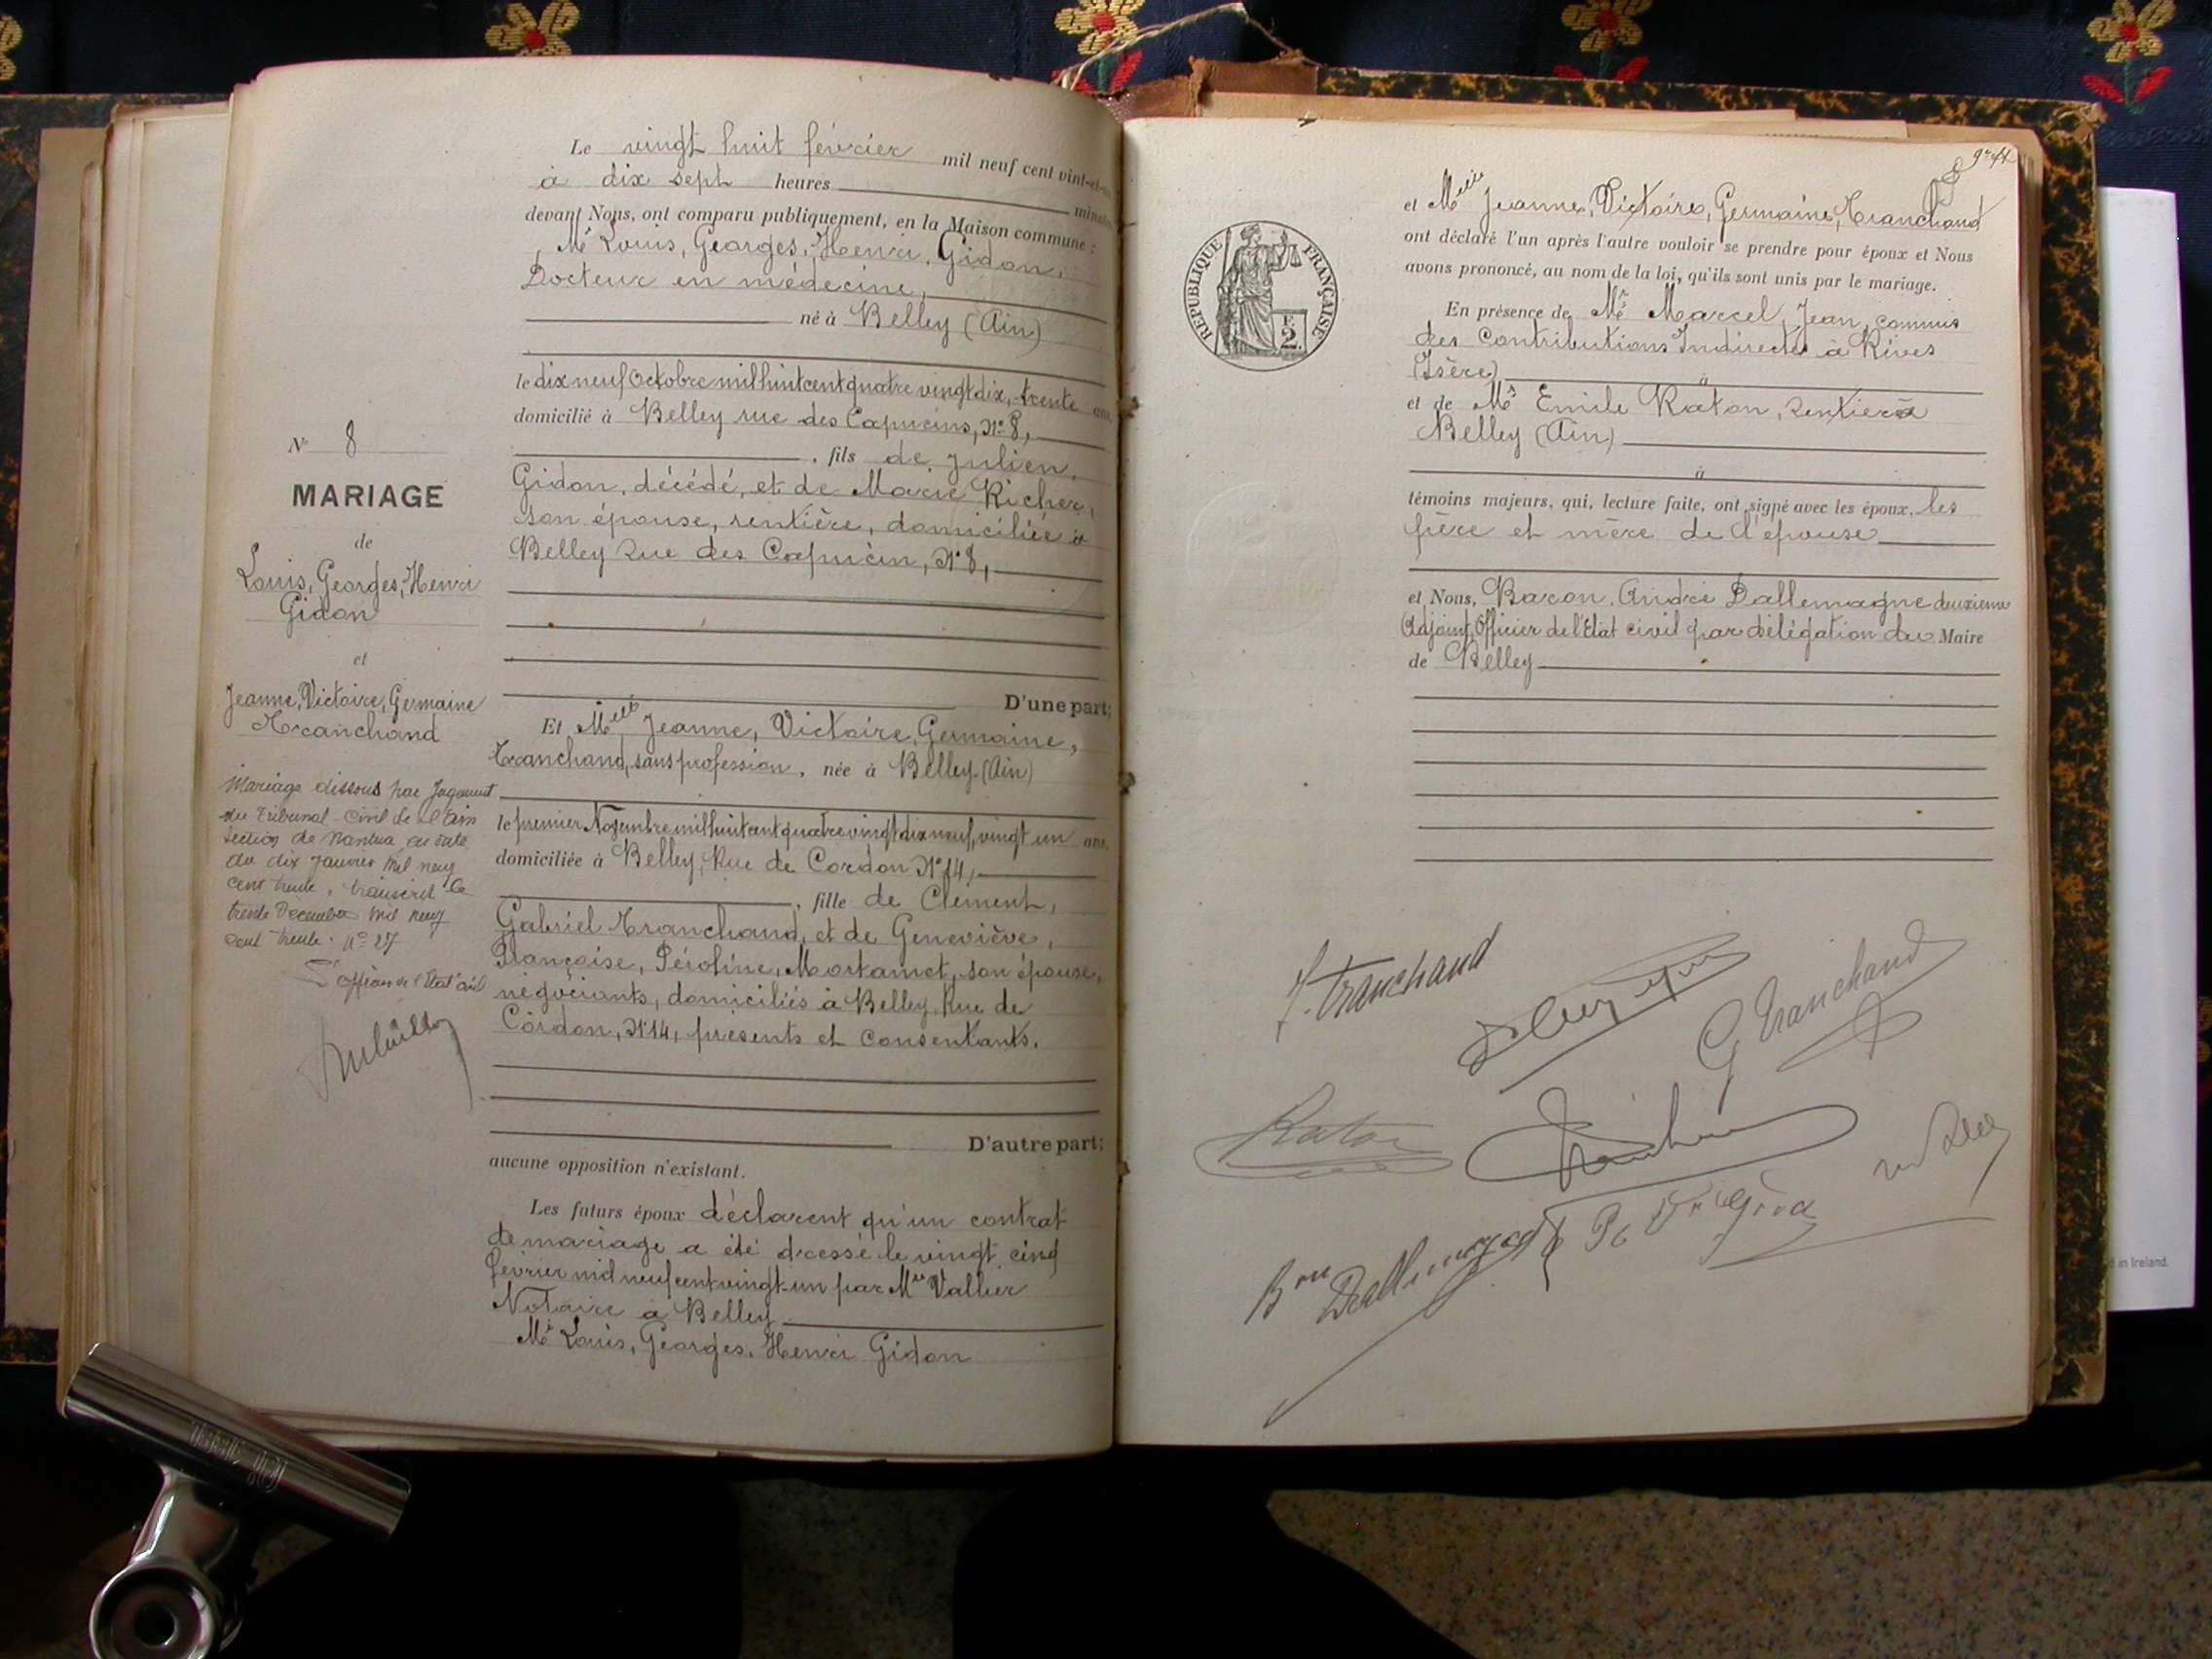 Le vingt huit février mil neuf cent vint-et-
à dix sept heures minutes
devant Nous, ont comparu publiquement, en la Maison commune :
Mr Louis, Georges, Henri, Gidon,
Docteur en médecine,
né à Belley (Ain)
le dix neuf Octobre mil huit cent quatre vingt dix, trente ans,
domicilié à Belley rue des Capucins, N° 8,
, fils de Julien,
Gidon, décédé, et de Marie Richer,
son épouse, rentière, domiciliée à
Belley Rue des Capucin, N° 8,
D'une part;
Et Melle Jeanne, Victoire, Germaine,
Tranchand, sans profession, née à Belley (Ain)
le premier Novembre mil huit cent quatre vingt dix neuf, vingt un ans,
domiciliée à Belley, Rue de Cordon N° 14,
, fille de Clément,
Gabriel Tranchand, et de Geneviève,
Françoise, Péroline, Mortamet, son épouse,
négociants, domiciliés à Belley Rue de
Cordon, N° 14, présents et consentants.
D'autre part;
aucune opposition n'existant.
Les futurs époux déclarent qu'un contrat
de mariage a été dressé le vingt cinq
février mil neuf cent vingt-un par Me Vallier
Notaire à Belley
Mr Louis, Georges, Henri Gidon
N° 8
MARIAGE
de
Louis, Georges, Henri
Gidon
et
Jeanne, Victoire, Germaine
Tranchand
Mariage dissous par Jugement
du Tribunal Civil de l'Ain
section de Nantua en date
du dix Janvier mil neuf
cent trente, transcrit le
trente Décembre mil neuf
cent trente. N° 27
L'officier de l'Etat civil
REPUBLIQUE FRANÇAISE
F.
2.
et Melle Jeanne, Victoire, Germaine, Tranchand
ont déclaré l'un après l'autre vouloir se prendre pour époux et Nous
avons prononcé, au nom de la loi, qu'ils sont unis par le mariage.
En présence de Mr Marcel Jean, commis
des Contributions Indirectes à Rives
(Isère) à
et de Mr Emile Raton, rentier à
Belley (Ain)
à
témoins majeurs, qui, lecture faite, ont signé avec les époux, les
père et mère de l'épouse
et Nous, Baron André Dallemagne deuxième
Adjoint, Officier de l'Etat civil par délégation du Maire
de Belley
J. Tranchand
G Tranchand
Raton
Bon Dallemagne
in Ireland.